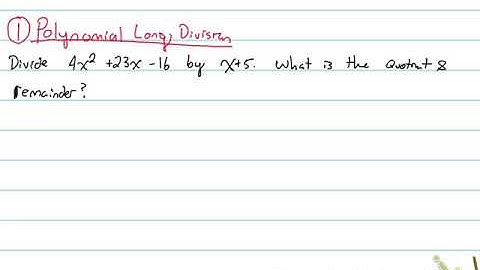 ① Polynomial Long Division
Divide 4x² +23x -16 by x+5. What is the Quotient &
remainder?